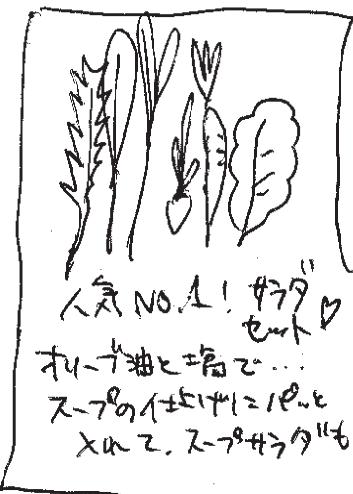 人気NO.1!サラダ
セット♡
オリーブ油と塩で…
スープの仕上げにパッと
入れて、スープサラダも